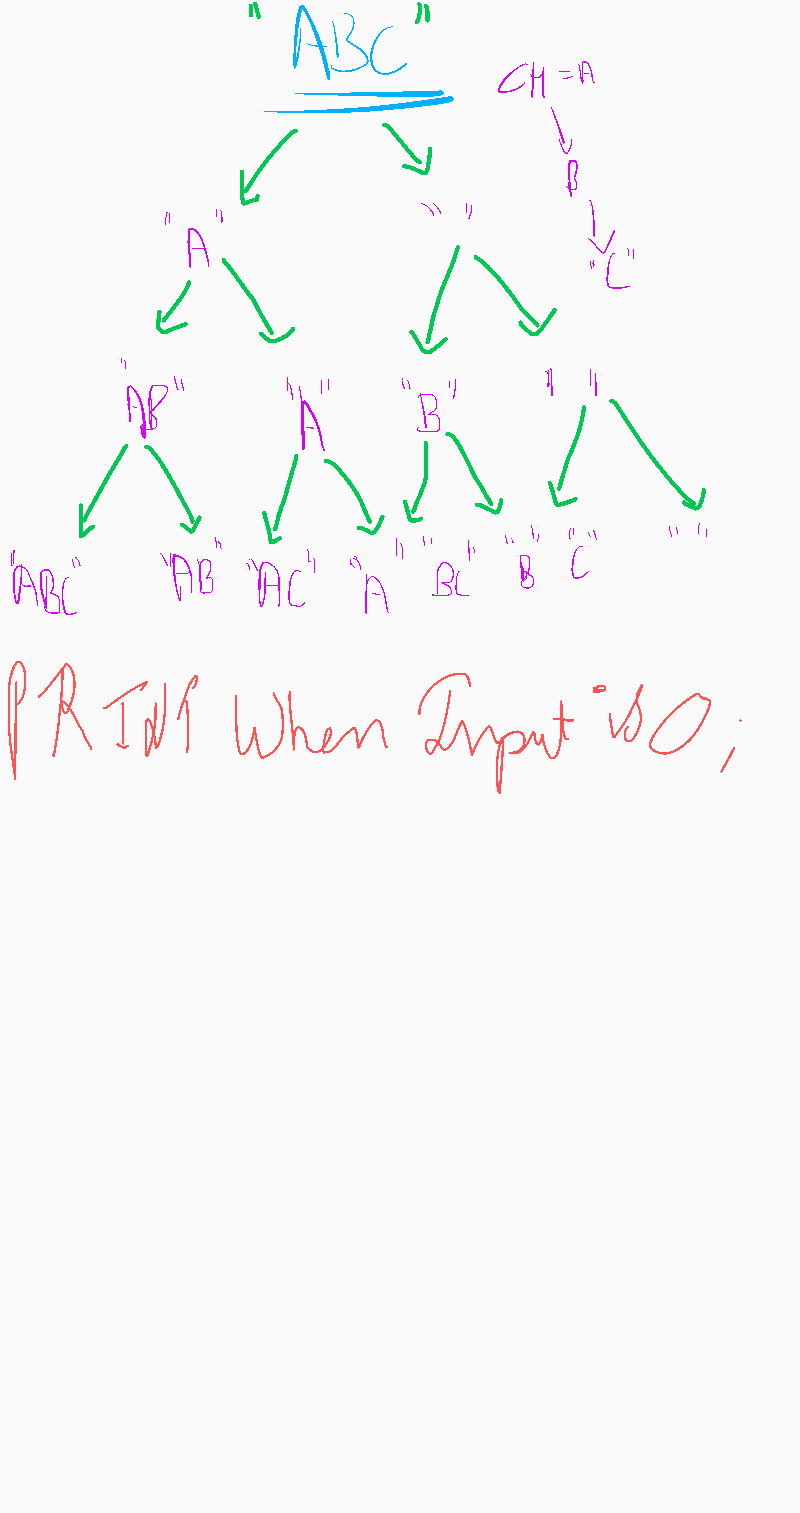 "ABC"
CH = A
B
"C"
"A" " "
"AB" "A" "B" " "
"ABC" "AB" "AC" "A" "BC" "B" "C" " "
PRINT When Input is 0;